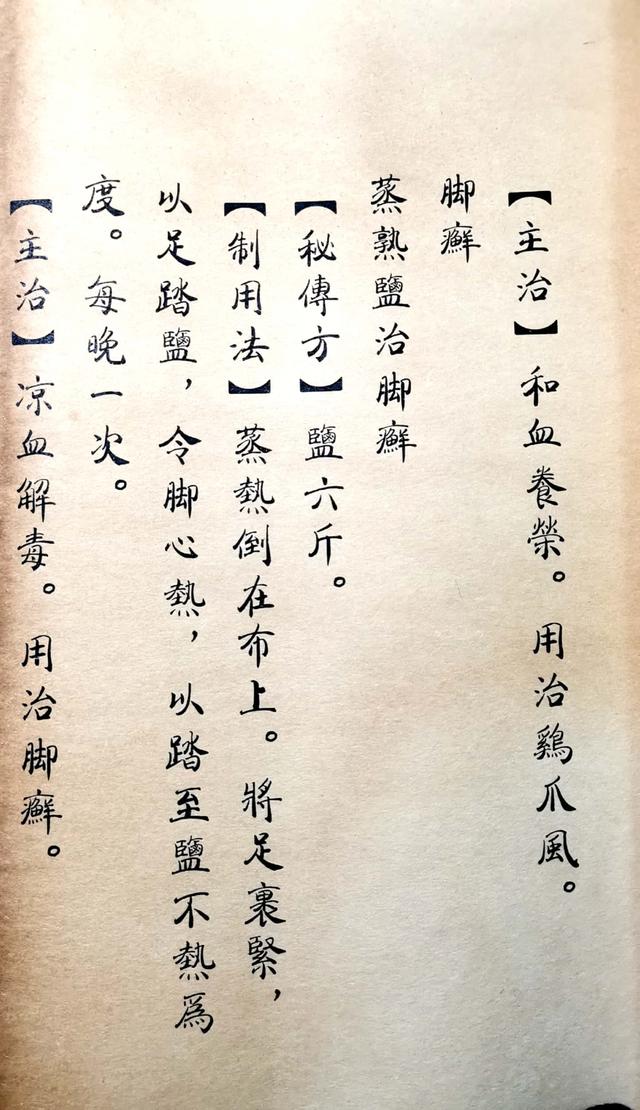 【主治】和血養榮。用治鷄爪風。
脚癬
蒸熟鹽治脚癬
【秘傳方】鹽六斤。
【制用法】蒸熱倒在布上。將足裹緊，
以足踏鹽，令脚心熱，以踏至鹽不熱爲
度。每晚一次。
【主治】凉血解毒。用治脚癬。